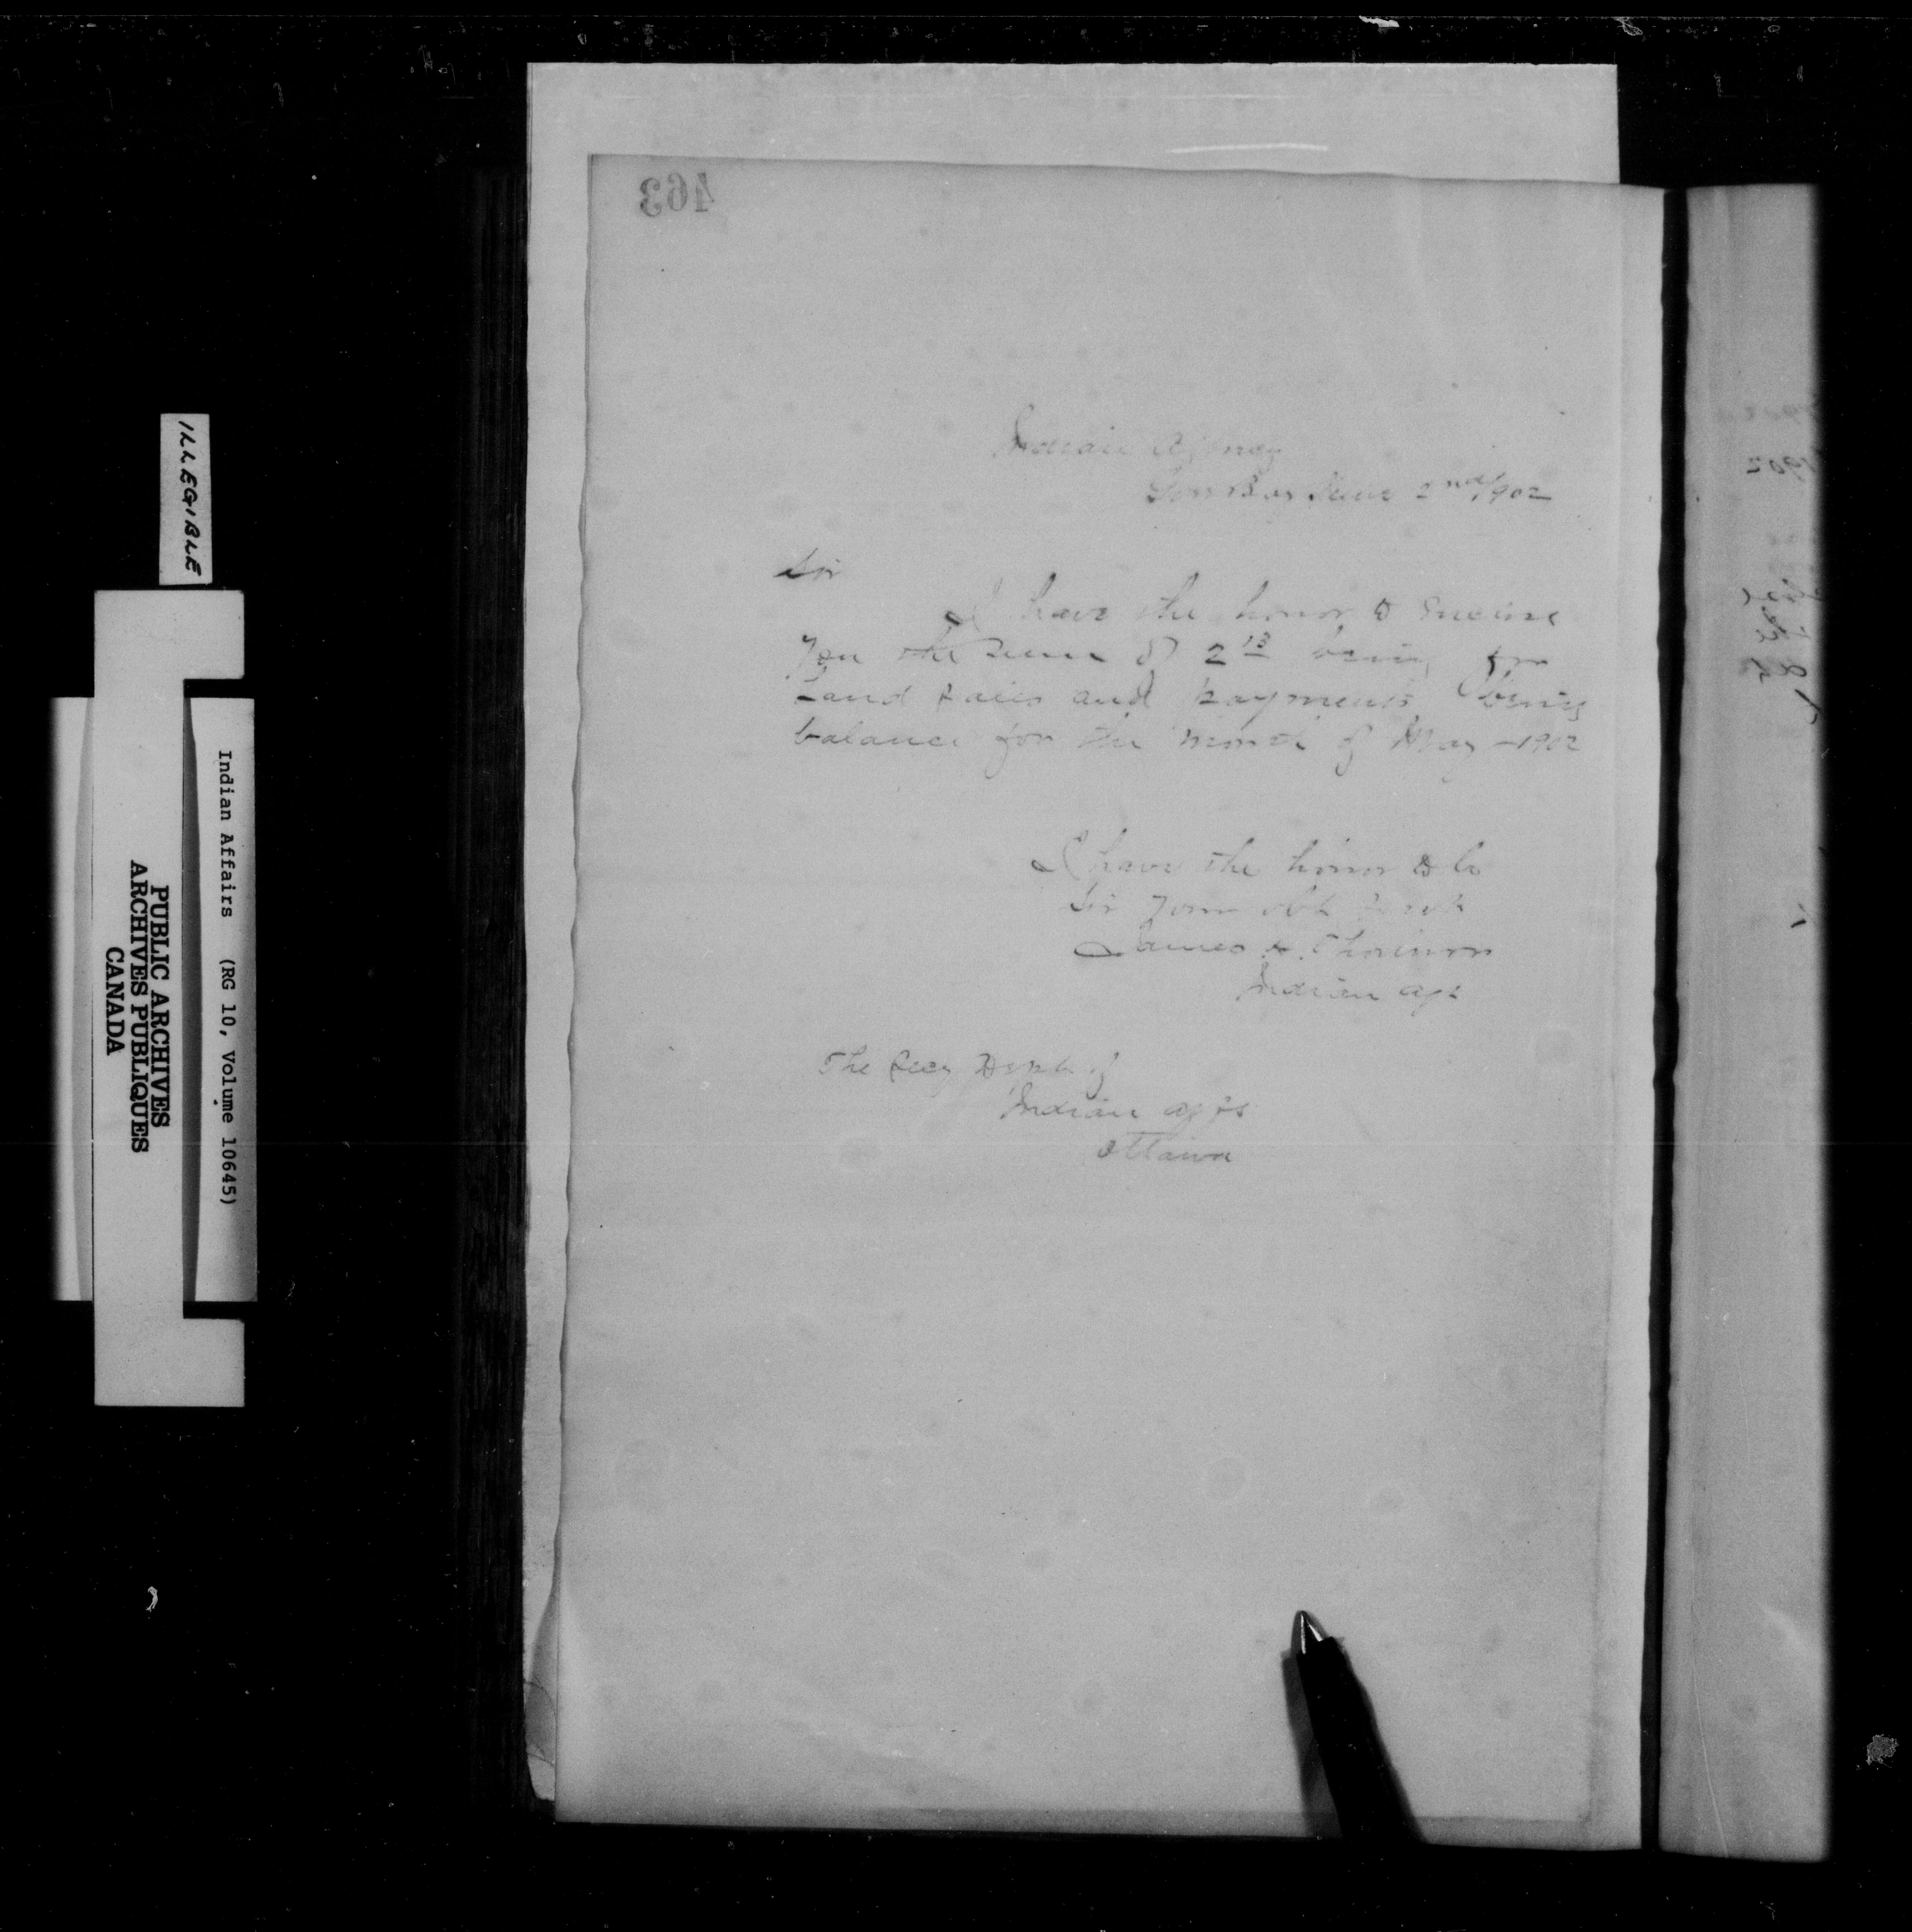 463
Indian Agency
Lion Bay June 2nd/1902
Sir
I have the honor to enclose
you the sum of 2 13 being for
Land Sales and payments being
balance for the month of May - 1902
I have the honor to be
Sir your obt Servt
James
Indian Agt
The Secy Dept of
Indian affs
Ottawa
ILLEGIBLE
Indian Affairs (RG 10, Volume 10645)
PUBLIC ARCHIVES
ARCHIVES PUBLIQUES
CANADA